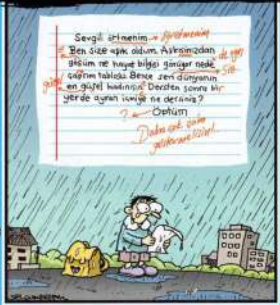 Sevgili örtmenim → öğretmenim
Ben size aşık oldum. Aşkınızdan
gözüm ne hayat bilgisi görüyor nede
de ayrı
çarpım tablosu. Bence sen dünyanın
siz
güzel
en güsel kadınısın. Dersten sonra bir
yerde ayran içmiye ne dersiniz?
? ← Öptüm
Daha çok